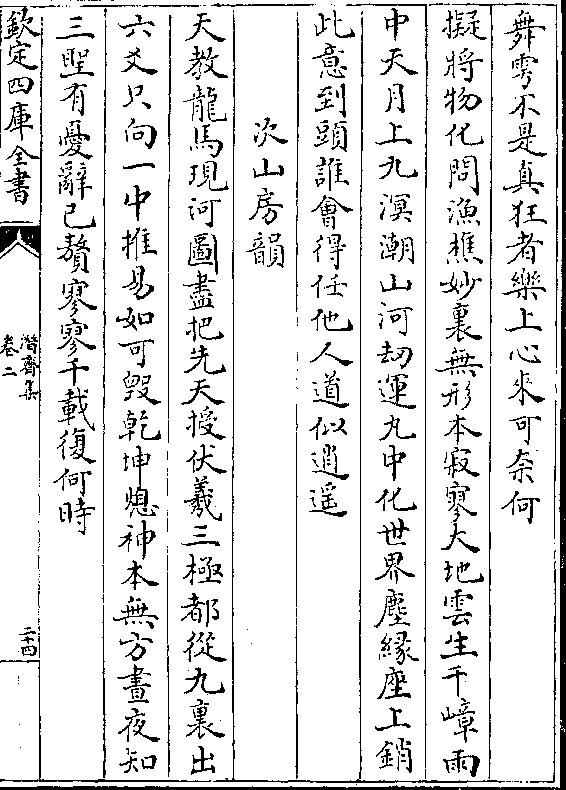 舞雩不是真狂者樂上心來可奈何
擬將物化問漁樵妙裏無形本寂寥大地雲生千嶂雨
中天月上九溟潮山河劫運九中化世界塵緣座上銷
此意到頭誰會得任他人道似逍遥
次山房韻
天教龍馬現河圖盡把先天授伏羲三極都從九裏出
六爻只向一中推易如可毀乾坤熄神本無方晝夜知
三聖有憂辭已贅寥寥千載復何時
欽定四庫全書
潛齋集
卷二
二十四